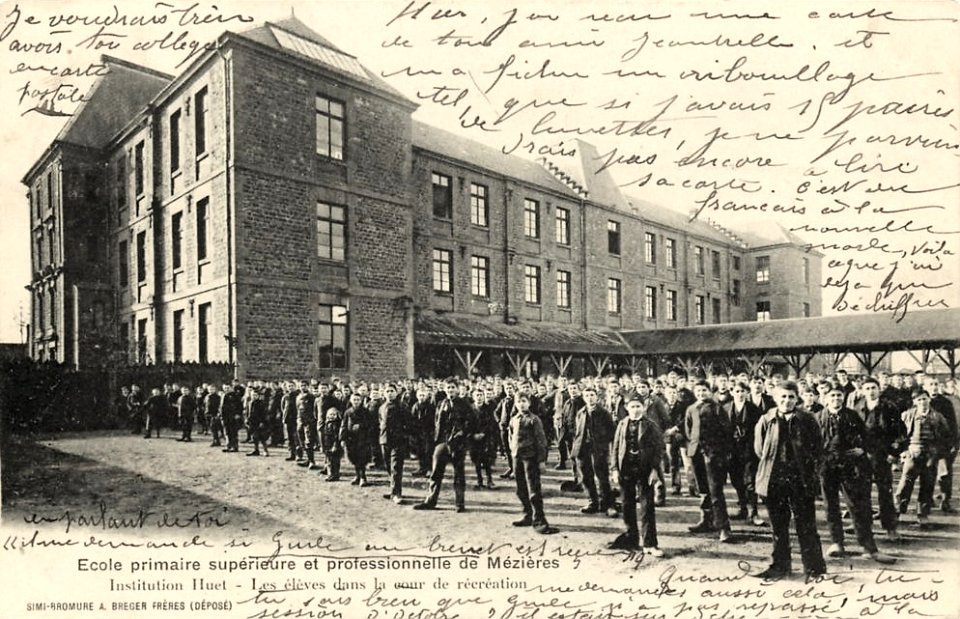 Je voudrais bien
avoir ton collège
en carte
postale
Hier, j'ai reçu une carte
de ton amie Jeantrelle. et
m'a fichu un gribouillage
tel, que si j'avais 15 paires
de lunettes, je ne parviendrais
pas encore à lire
sa carte. C'est du
français à la
nouvelle
mode, Voilà
ce que j'ai
déjà pu
déchiffrer
en parlant de toi
"il me demande si Guile au brevet est reçu
Ecole primaire supérieure et professionnelle de Mézières
Institution Huet - Les élèves dans la cour de récréation
SIMI-BROMURE A. BREGER FRÈRES (DÉPOSÉ)
Quand à toi, tu
me demandes aussi cela, mais
tu sais bien que Guile n'a pas repassé à la
session d'Octobre
il était sur